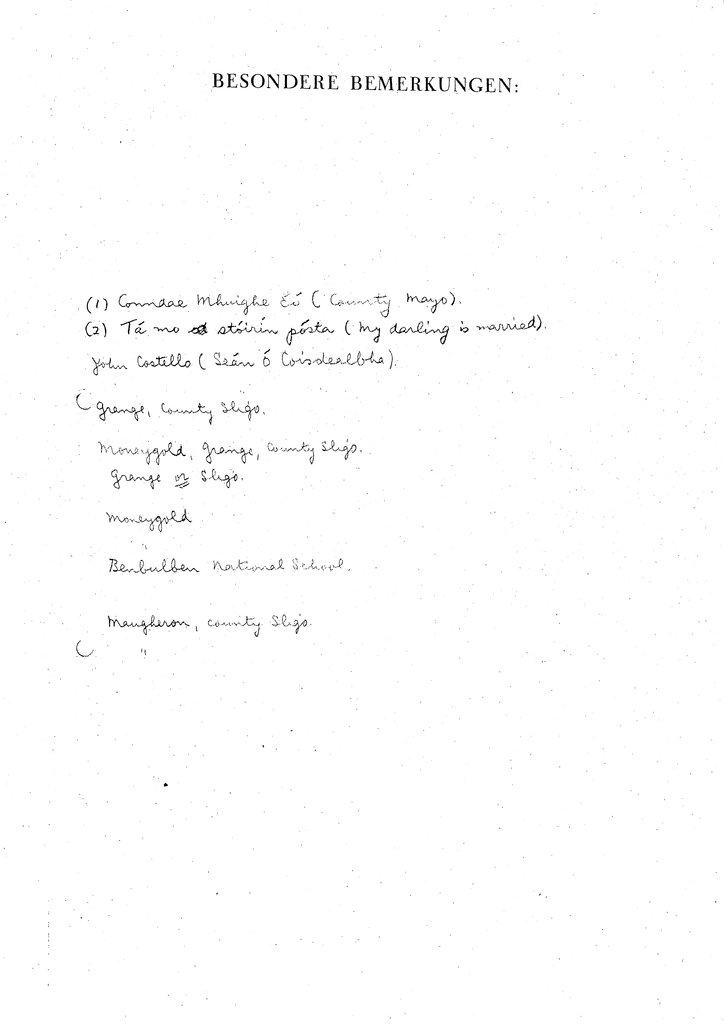 BESONDERE BEMERKUNGEN:
(1) Conndae Mhuighe Eó (County Mayo).
(2) Tá mo stóirín pósta (My darling is married).
John Costello (Seán Ó Coisdealbha).
Grange, County Sligo.
Moneygold, Grange, County Sligo.
Grange or Sligo.
Moneygold
"
Benbulben National School.
Maugheron, County Sligo.
"